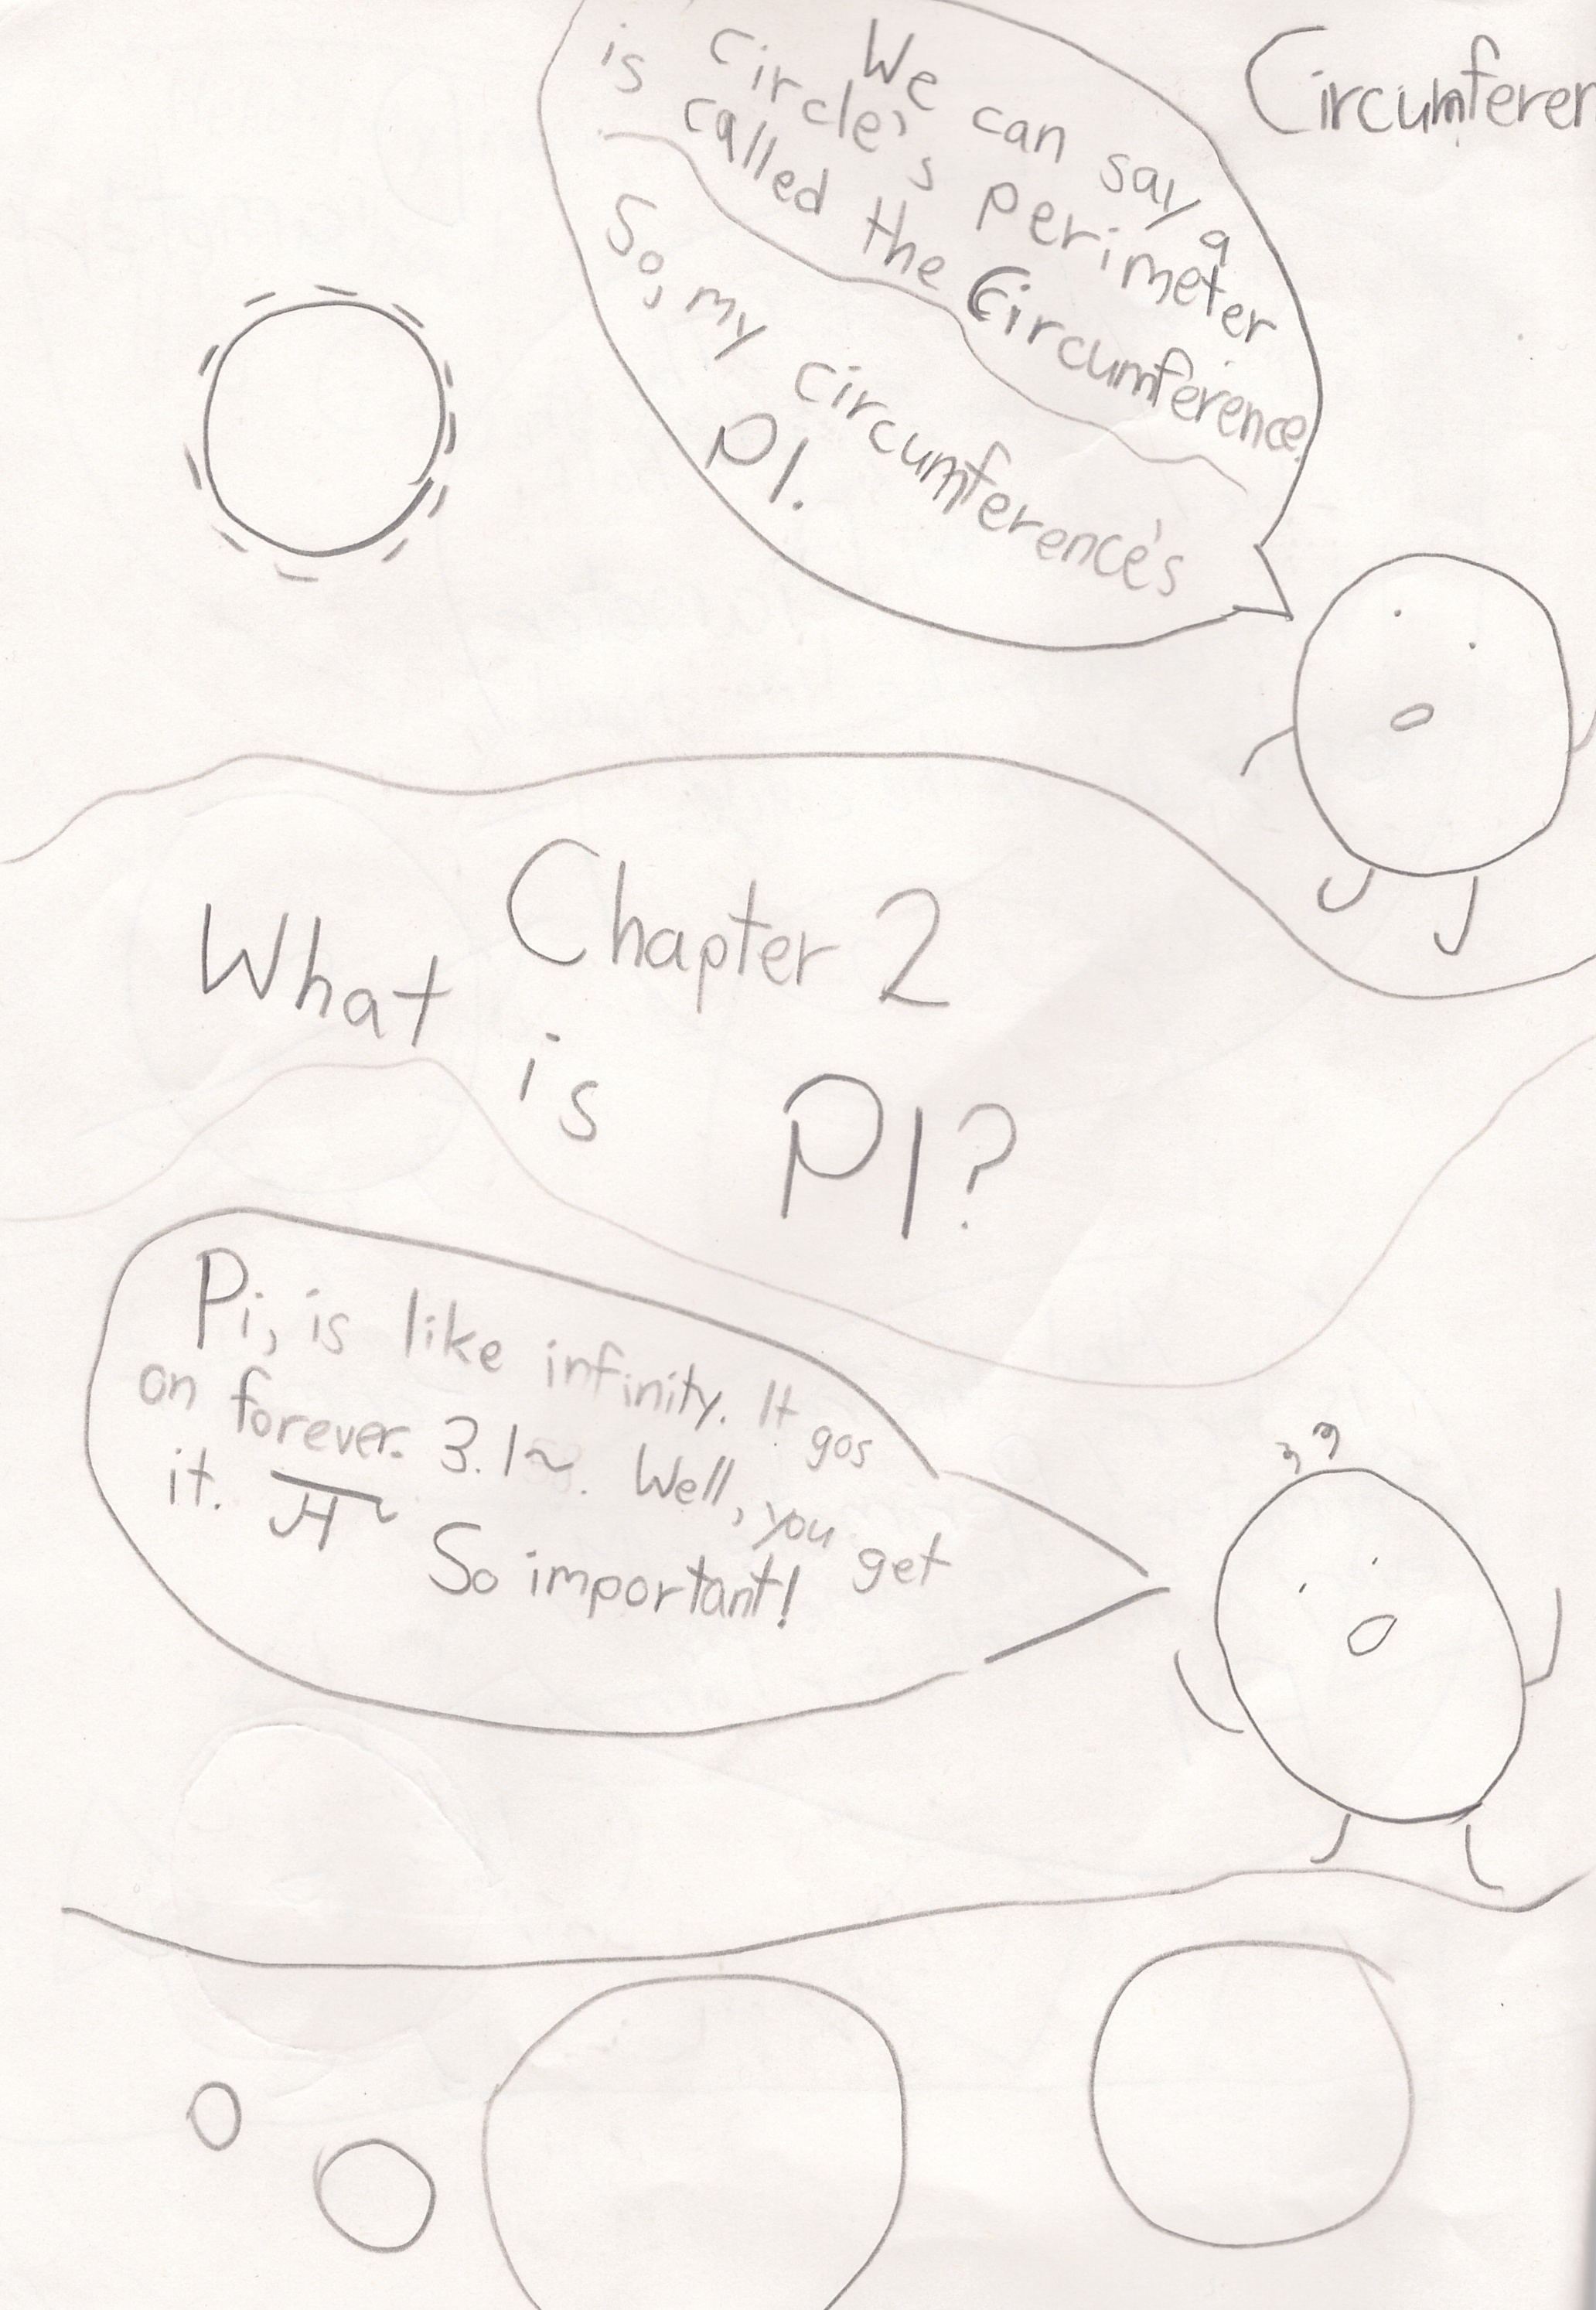 Circumferen
We can say a
circle's perimeter
is called the Circumference.
So, my circumference's
PI.
Chapter 2
What is PI?
Pi, is like infinity. It gos
on forever. 3.1~. Well, you get
it. π So important!